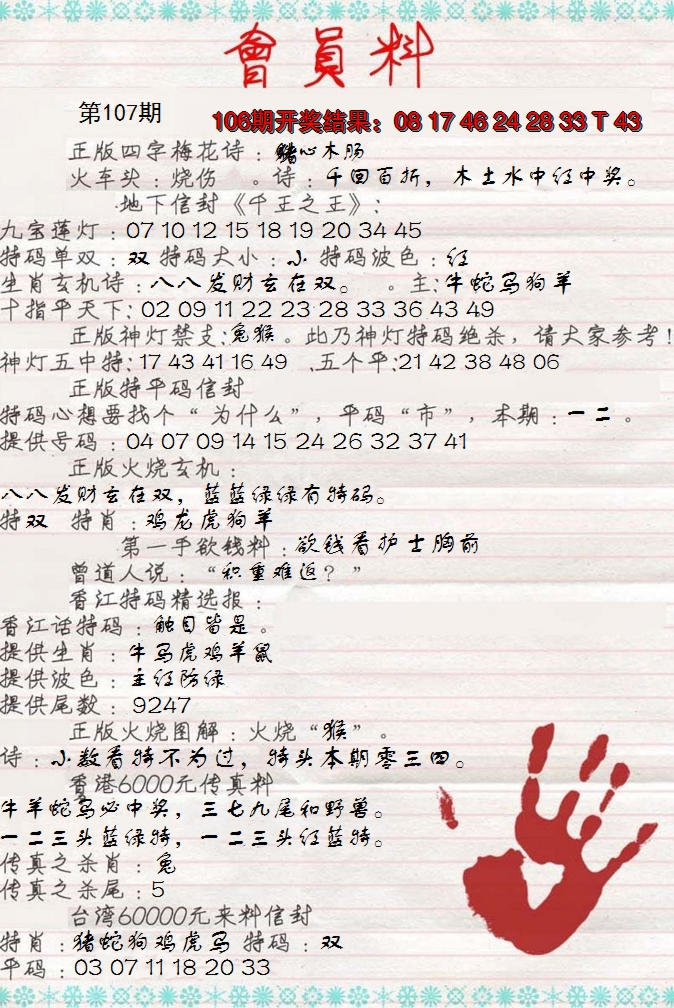 會員料
第107期
106期开奖结果：08 17 46 24 28 33 T 43
正版四字梅花诗：猪心木肠
火车头：烧伤 。诗：千回百折，木土水中红中奖。
地下信封《千王之王》：
九宝莲灯：07 10 12 15 18 19 20 34 45
特码单双：双 特码大小：小 特码波色：红
生肖玄机诗：八八发财玄在双。 。主：牛蛇马狗羊
十指平天下：02 09 11 22 23 28 33 36 43 49
正版神灯禁支：兔猴。此乃神灯特码绝杀，请大家参考！
神灯五中特：17 43 41 16 49 .五个平：21 42 38 48 06
正版特平码信封
特码心想要找个“为什么”，平码“市”，本期：一二。
提供号码：04 07 09 14 15 24 26 32 37 41
正版火烧玄机：
八八发财玄在双，蓝蓝绿绿有特码。
特双 特肖：鸡龙虎狗羊
第一手欲钱料：欲钱看护士胸前
曾道人说：“积重难返？”
香江特码精选报：
香江话特码：触目皆是。
提供生肖：牛马虎鸡羊鼠
提供波色：主红防绿
提供尾数：9247
正版火烧图解：火烧“猴”。
诗：小数看特不为过，特头本期零三四。
香港6000元传真料
牛羊蛇马必中奖，三七九尾和野兽。
一二三头蓝绿特，一二三头红蓝特。
传真之杀肖：兔
传真之杀尾：5
台湾60000元来料信封
特肖：猪蛇狗鸡虎马 特码：双
平码：03 07 11 18 20 33